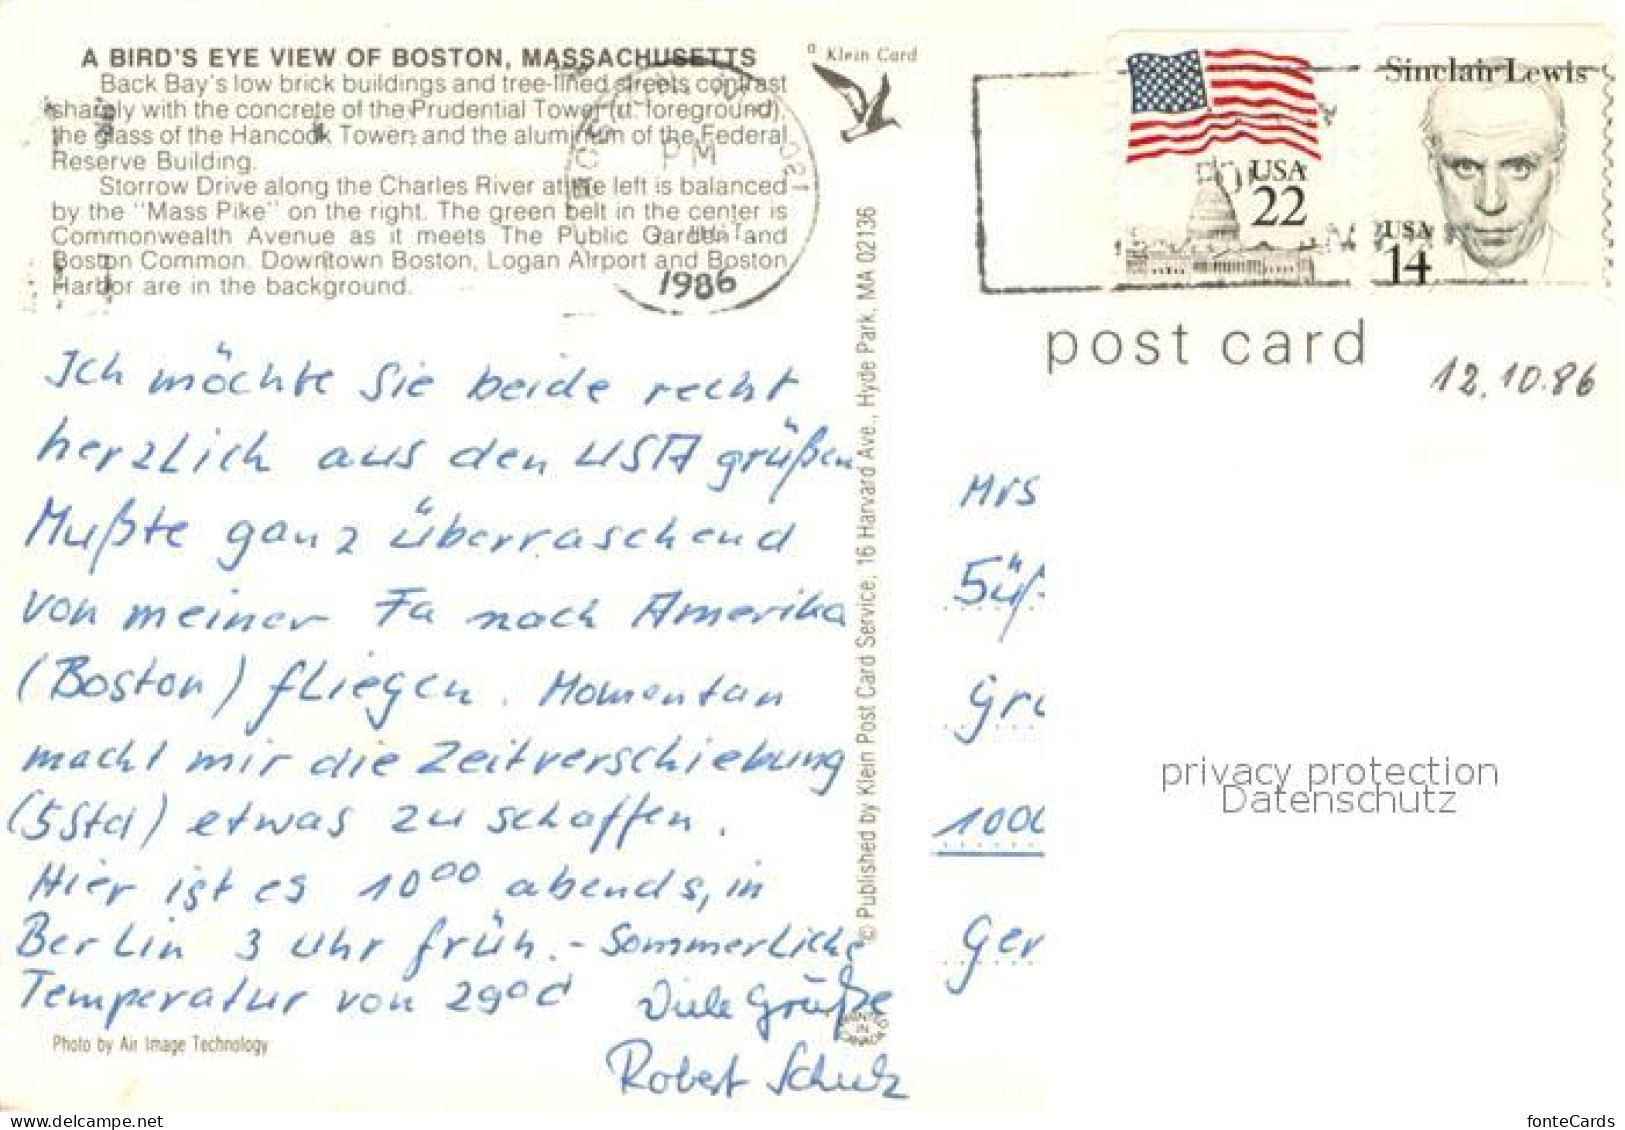 A BIRD'S EYE VIEW OF BOSTON, MASSACHUSETTS
Back Bay's low brick buildings and tree-lined streets contrast
sharply with the concrete of the Prudential Tower (rt. foreground),
the glass of the Hancock Tower, and the aluminum of the Federal
Reserve Building.
Storrow Drive along the Charles River at the left is balanced
by the "Mass Pike" on the right. The green belt in the center is
Commonwealth Avenue as it meets The Public Garden and
Boston Common. Downtown Boston, Logan Airport and Boston
Harbor are in the background.
Klein Card
PM
1986
USA
22
Sinclair Lewis
USA
14
post card
12.10.86
Ich möchte Sie beide recht
herzlich aus den USA grüßen
Mußte ganz überraschend
von meiner Fa nach Amerika
(Boston) fliegen. Momentan
macht mir die Zeitverschiebung
(5 Std) etwas zu schaffen.
Hier ist es 10⁰⁰ abends, in
Berlin 3 Uhr früh. - Sommerliche
Temperatur von 29°C
Viele Grüße
Robert Schulz
Photo by Air Image Technology
© Published by Klein Post Card Service, 16 Harvard Ave., Hyde Park, MA 02136
Mrs
Süß
Gr
100
Ger
privacy protection
Datenschutz
fonteCards